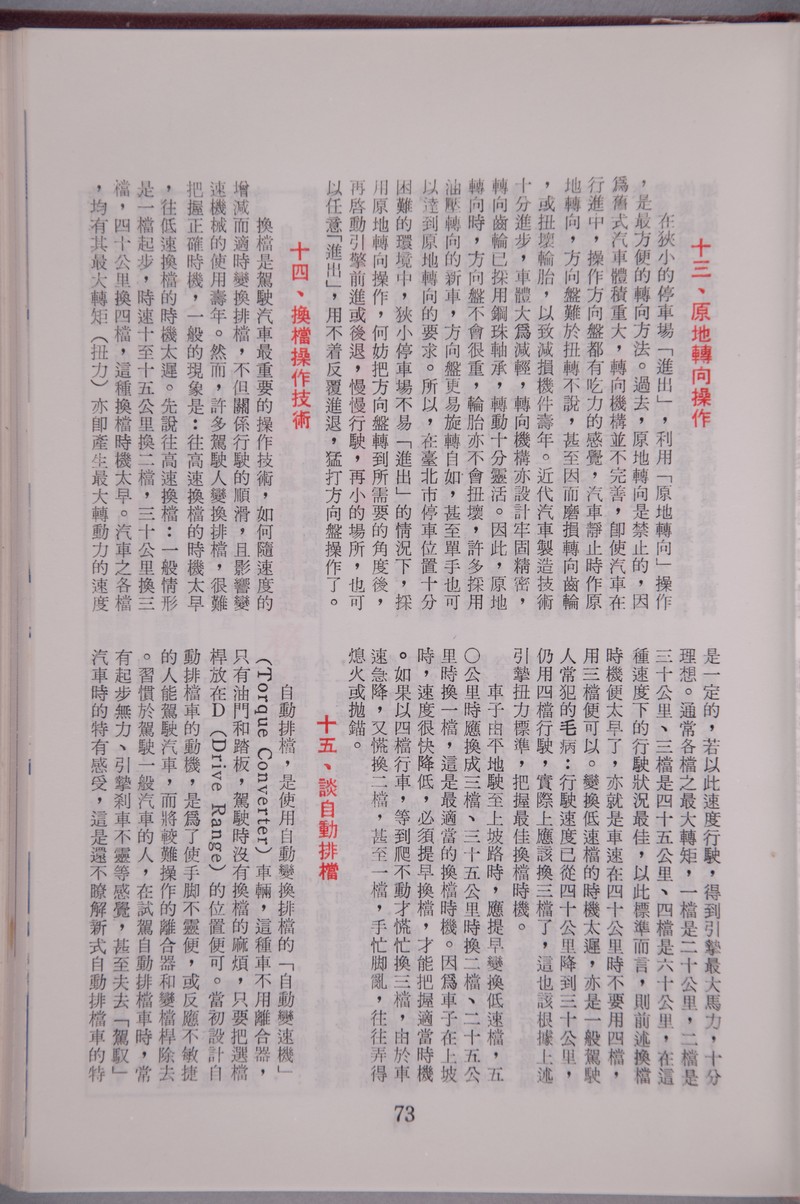 十三、原地轉向操作
在狹小的停車場「進出」，利用「原地轉向」操作
，是最方便的轉向方法。過去，原地轉向是禁止的，因
爲舊式汽車體積重大，轉向機構並不完善，卽使汽車在
行進中，操作方向盤都有吃力的感覺，汽車靜止時作原
地轉向，方向盤難於扭轉不說，甚至因而磨損轉向齒輪
，或扭壞輪胎，以致減損機件壽年。近代汽車製造技術
十分進步，車體大爲減輕，轉向機構亦設計牢固精密，
轉向齒輪已採用鋼珠軸承，轉動十分靈活。因此，原地
轉向時，方向盤不會很重，輪胎亦不會扭壞，許多採用
油壓轉向的新車，方向盤更易旋轉自如，甚至單手也可
以達到原地轉向的要求。所以，在臺北市停車位置十分
困難的環境中，狹小停車場不易「進出」的情況下，採
用原地轉向操作，何妨把方向盤轉到所需要的角度後，
再啓動引擎前進或後退，慢慢行駛，再小的場所，也可
以任意「進出」，用不着反覆進退，猛打方向盤操作了。
十四、換檔操作技術
換檔是駕駛汽車最重要的操作技術，如何隨速度的
增減而適時變換排檔，不但關係行駛的順滑，且影響變
速機械的使用壽年。然而，許多駕駛人變換排檔，很難
把握正確時機，一般的現象是：往高速換檔的時機太早
，往低速換檔的時機太遲。先說往高速換檔：一般情形
是一檔起步，時速十至十五公里換二檔，三十公里換三
檔，四十公里換四檔，這種換檔時機太早。汽車之各檔
，均有其最大轉矩（扭力）亦卽產生最大轉動力的速度
是一定的，若以此速度行駛，得到引擎最大馬力，十分
理想。通常各檔之最大轉矩，一檔是二十公里，二檔是
三十公里、三檔是四十五公里、四檔是六十公里，在這
種速度下的行駛狀況最佳，以此標準而言，則前述換檔
時機便太早了，亦就是車速在四十公里時不要用四檔，
用三檔便可以。變換低速檔的時機太遲，亦是一般駕駛
人常犯的毛病：行駛速度已從四十公里降到三十公里，
仍用四檔行駛，實際上應該換三檔了，這也該根據上述
引擎扭力標準，把握最佳換檔時機。
車子由平地駛至上坡路時，應提早變換低速檔，五
〇公里時應換成三檔、三十五公里時換二檔、二十五公
里時換一檔，這是最適當的換檔時機。因爲車子在上坡
時，速度很快降低，必須提早換檔，才能把握適當時機
。如果以四檔行車，等到爬不動才慌忙換三檔，由於車
速急降，又慌換二檔，甚至一檔，手忙脚亂，往往弄得
熄火或拋錨。
十五、談自動排檔
自動排檔，是使用自動變換排檔的「自動變速機」
（Torque Converter）車輛，這種車不用離合器，
只有油門和踏板，駕駛時沒有換檔的麻煩，只要把選檔
桿放在D（Drive Range）的位置便可。當初設計自
動排檔車的動機，是爲了使手脚不靈便，或反應不敏捷
的人能駕駛汽車，而將較難操作的離合器和變檔桿除去
。習慣於駕駛一般汽車的人，在試駕自動排檔車時，常
有起步無力、引擎剎車不靈等感覺，甚至失去「駕馭」
汽車時的特有感受，這是還不瞭解新式自動排檔車的特
73